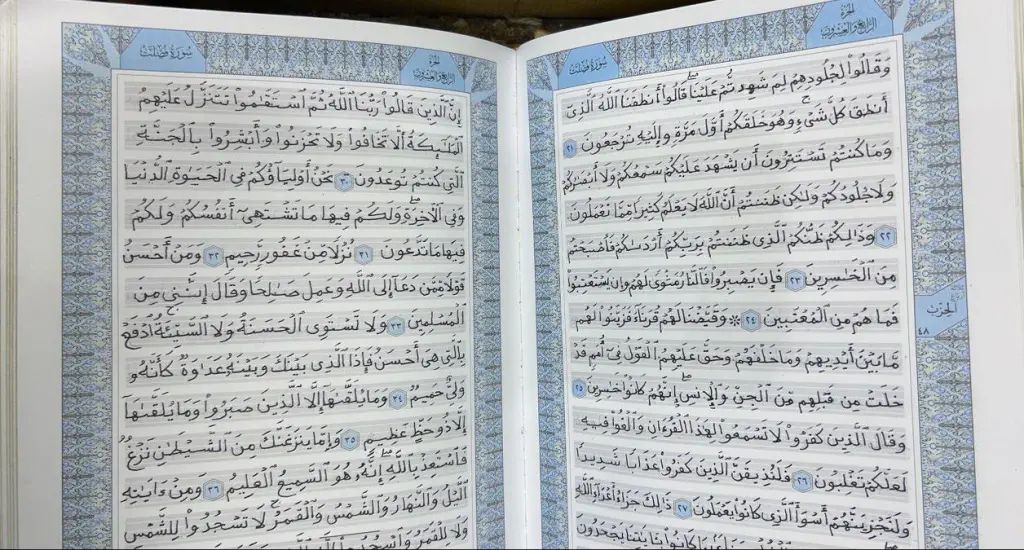 سورة فصلت
الجزء الرابع والعشرون
وَقَالُوا۟ لِجُلُودِهِمْ لِمَ شَهِدتُّمْ عَلَيْنَا ۖ قَالُوٓا۟ أَنطَقَنَا ٱللَّهُ ٱلَّذِىٓ
أَنطَقَ كُلَّ شَىْءٍ ۚ وَهُوَ خَلَقَكُمْ أَوَّلَ مَرَّةٍ وَإِلَيْهِ تُرْجَعُونَ ٢١
وَمَا كُنتُمْ تَسْتَتِرُونَ أَن يَشْهَدَ عَلَيْكُمْ سَمْعُكُمْ وَلَآ أَبْصَـٰرُكُمْ
وَلَا جُلُودُكُمْ وَلَـٰكِن ظَنَنتُمْ أَنَّ ٱللَّهَ لَا يَعْلَمُ كَثِيرًا مِّمَّا تَعْمَلُونَ
٢٢ وَذَٰلِكُمْ ظَنُّكُمُ ٱلَّذِى ظَنَنتُم بِرَبِّكُمْ أَرْدَىٰكُمْ فَأَصْبَحْتُم
مِّنَ ٱلْخَـٰسِرِينَ ٢٣ فَإِن يَصْبِرُوا۟ فَٱلنَّارُ مَثْوًى لَّهُمْ ۖ وَإِن يَسْتَعْتِبُوا۟
فَمَا هُم مِّنَ ٱلْمُعْتَبِينَ ٢٤ ۞ وَقَيَّضْنَا لَهُمْ قُرَنَآءَ فَزَيَّنُوا۟ لَهُم
مَّا بَيْنَ أَيْدِيهِمْ وَمَا خَلْفَهُمْ وَحَقَّ عَلَيْهِمُ ٱلْقَوْلُ فِىٓ أُمَمٍ قَدْ
خَلَتْ مِن قَبْلِهِم مِّنَ ٱلْجِنِّ وَٱلْإِنسِ ۖ إِنَّهُمْ كَانُوا۟ خَـٰسِرِينَ ٢٥
وَقَالَ ٱلَّذِينَ كَفَرُوا۟ لَا تَسْمَعُوا۟ لِهَـٰذَا ٱلْقُرْءَانِ وَٱلْغَوْا۟ فِيهِ
لَعَلَّكُمْ تَغْلِبُونَ ٢٦ فَلَنُذِيقَنَّ ٱلَّذِينَ كَفَرُوا۟ عَذَابًا شَدِيدًا
وَلَنَجْزِيَنَّهُمْ أَسْوَأَ ٱلَّذِى كَانُوا۟ يَعْمَلُونَ ٢٧ ذَٰلِكَ جَزَآءُ أَعْدَآءِ ٱللَّهِ
جَزَآءًۢ بِمَا كَانُوا۟ بِـَٔايَـٰتِنَا يَجْحَدُونَ
الحزب
٤٨
الجزء الرابع والعشرون
سورة فصلت
إِنَّ ٱلَّذِينَ قَالُوا۟ رَبُّنَا ٱللَّهُ ثُمَّ ٱسْتَقَـٰمُوا۟ تَتَنَزَّلُ عَلَيْهِمُ
ٱلْمَلَـٰٓئِكَةُ أَلَّا تَخَافُوا۟ وَلَا تَحْزَنُوا۟ وَأَبْشِرُوا۟ بِٱلْجَنَّةِ
ٱلَّتِى كُنتُمْ تُوعَدُونَ ٣٠ نَحْنُ أَوْلِيَآؤُكُمْ فِى ٱلْحَيَوٰةِ ٱلدُّنْيَا
وَفِى ٱلْـَٔاخِرَةِ ۖ وَلَكُمْ فِيهَا مَا تَشْتَهِىٓ أَنفُسُكُمْ وَلَكُمْ
فِيهَا مَا تَدَّعُونَ ٣١ نُزُلًا مِّنْ غَفُورٍ رَّحِيمٍ ٣٢ وَمَنْ أَحْسَنُ
قَوْلًا مِّمَّن دَعَآ إِلَى ٱللَّهِ وَعَمِلَ صَـٰلِحًا وَقَالَ إِنَّنِى مِنَ
ٱلْمُسْلِمِينَ ٣٣ وَلَا تَسْتَوِى ٱلْحَسَنَةُ وَلَا ٱلسَّيِّئَةُ ۚ ٱدْفَعْ
بِٱلَّتِى هِىَ أَحْسَنُ فَإِذَا ٱلَّذِى بَيْنَكَ وَبَيْنَهُۥ عَدَٰوَةٌ كَأَنَّهُۥ
وَلِىٌّ حَمِيمٌ ٣٤ وَمَا يُلَقَّىٰهَآ إِلَّا ٱلَّذِينَ صَبَرُوا۟ وَمَا يُلَقَّىٰهَآ
إِلَّا ذُو حَظٍّ عَظِيمٍ ٣٥ وَإِمَّا يَنزَغَنَّكَ مِنَ ٱلشَّيْطَـٰنِ نَزْغٌ
فَٱسْتَعِذْ بِٱللَّهِ ۖ إِنَّهُۥ هُوَ ٱلسَّمِيعُ ٱلْعَلِيمُ ٣٦ وَمِنْ ءَايَـٰتِهِ
ٱلَّيْلُ وَٱلنَّهَارُ وَٱلشَّمْسُ وَٱلْقَمَرُ ۚ لَا تَسْجُدُوا۟ لِلشَّمْسِ
وَلَا لِلْقَمَرِ وَٱسْجُدُوا۟ لِلَّهِ